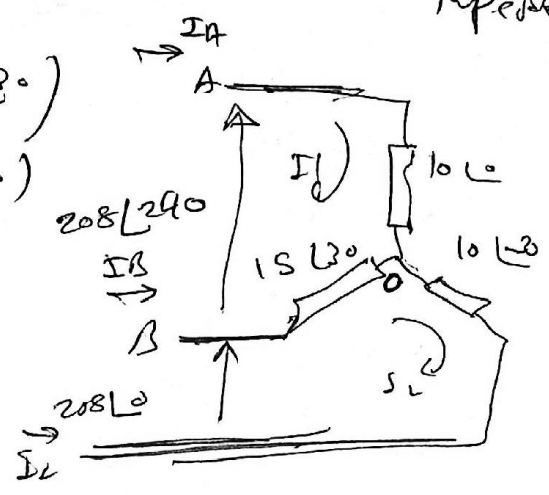 IA
A
I1
10∠0
208∠240
IB
15∠30
10∠-30
O
B
208∠0